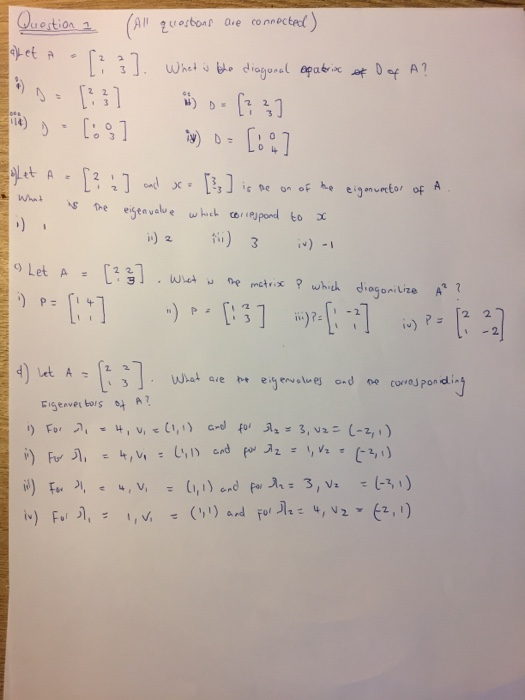 Question 2 (All questions are connected)
a) Let A = [2 2 1 3]. What is the diagonal matrix D of A?
i) D = [2 2 1 3] ii) D = [2 2 3]
iii) D = [1 0 0 3] iv) D = [1 0 0 4]
b) Let A = [2 1 1 2] and x = [3 -3] is the on of the eigenvector of A.
What is the eigenvalue which correspond to x
i) 1 ii) 2 iii) 3 iv) -1
c) Let A = [2 2 1 3]. What is the matrix P which diagonilize A² ?
i) P = [1 4 1 1] ii) P = [1 2 1 3] iii) P = [1 -2 1 1] iv) P = [2 2 1 -2]
d) Let A = [2 2 1 3]. What are the eigenvalues and the corresponding
Eigenvectors of A?
i) For λ₁ = 4, v₁ = (1,1) and for λ₂ = 3, v₂ = (-2,1)
ii) For λ₁ = 4, v₁ = (1,1) and for λ₂ = 1, v₂ = (-2,1)
iii) For λ₁ = 4, v₁ = (1,1) and for λ₂ = 3, v₂ = (-2,1)
iv) For λ₁ = 1, v₁ = (1,1) and for λ₂ = 4, v₂ = (-2,1)